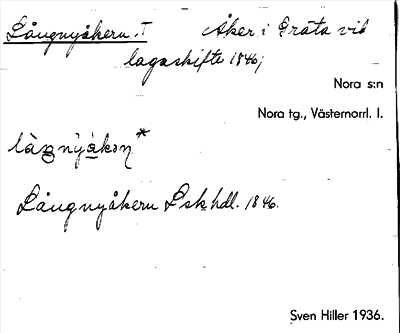 Långnyåkern. T Åker i Gräta vid
lagaskifte 1846;
Nora s:n
Nora tg., Västernorrl. l.
Långnyåkern Lskhdl. 1846.
Sven Hiller 1936.